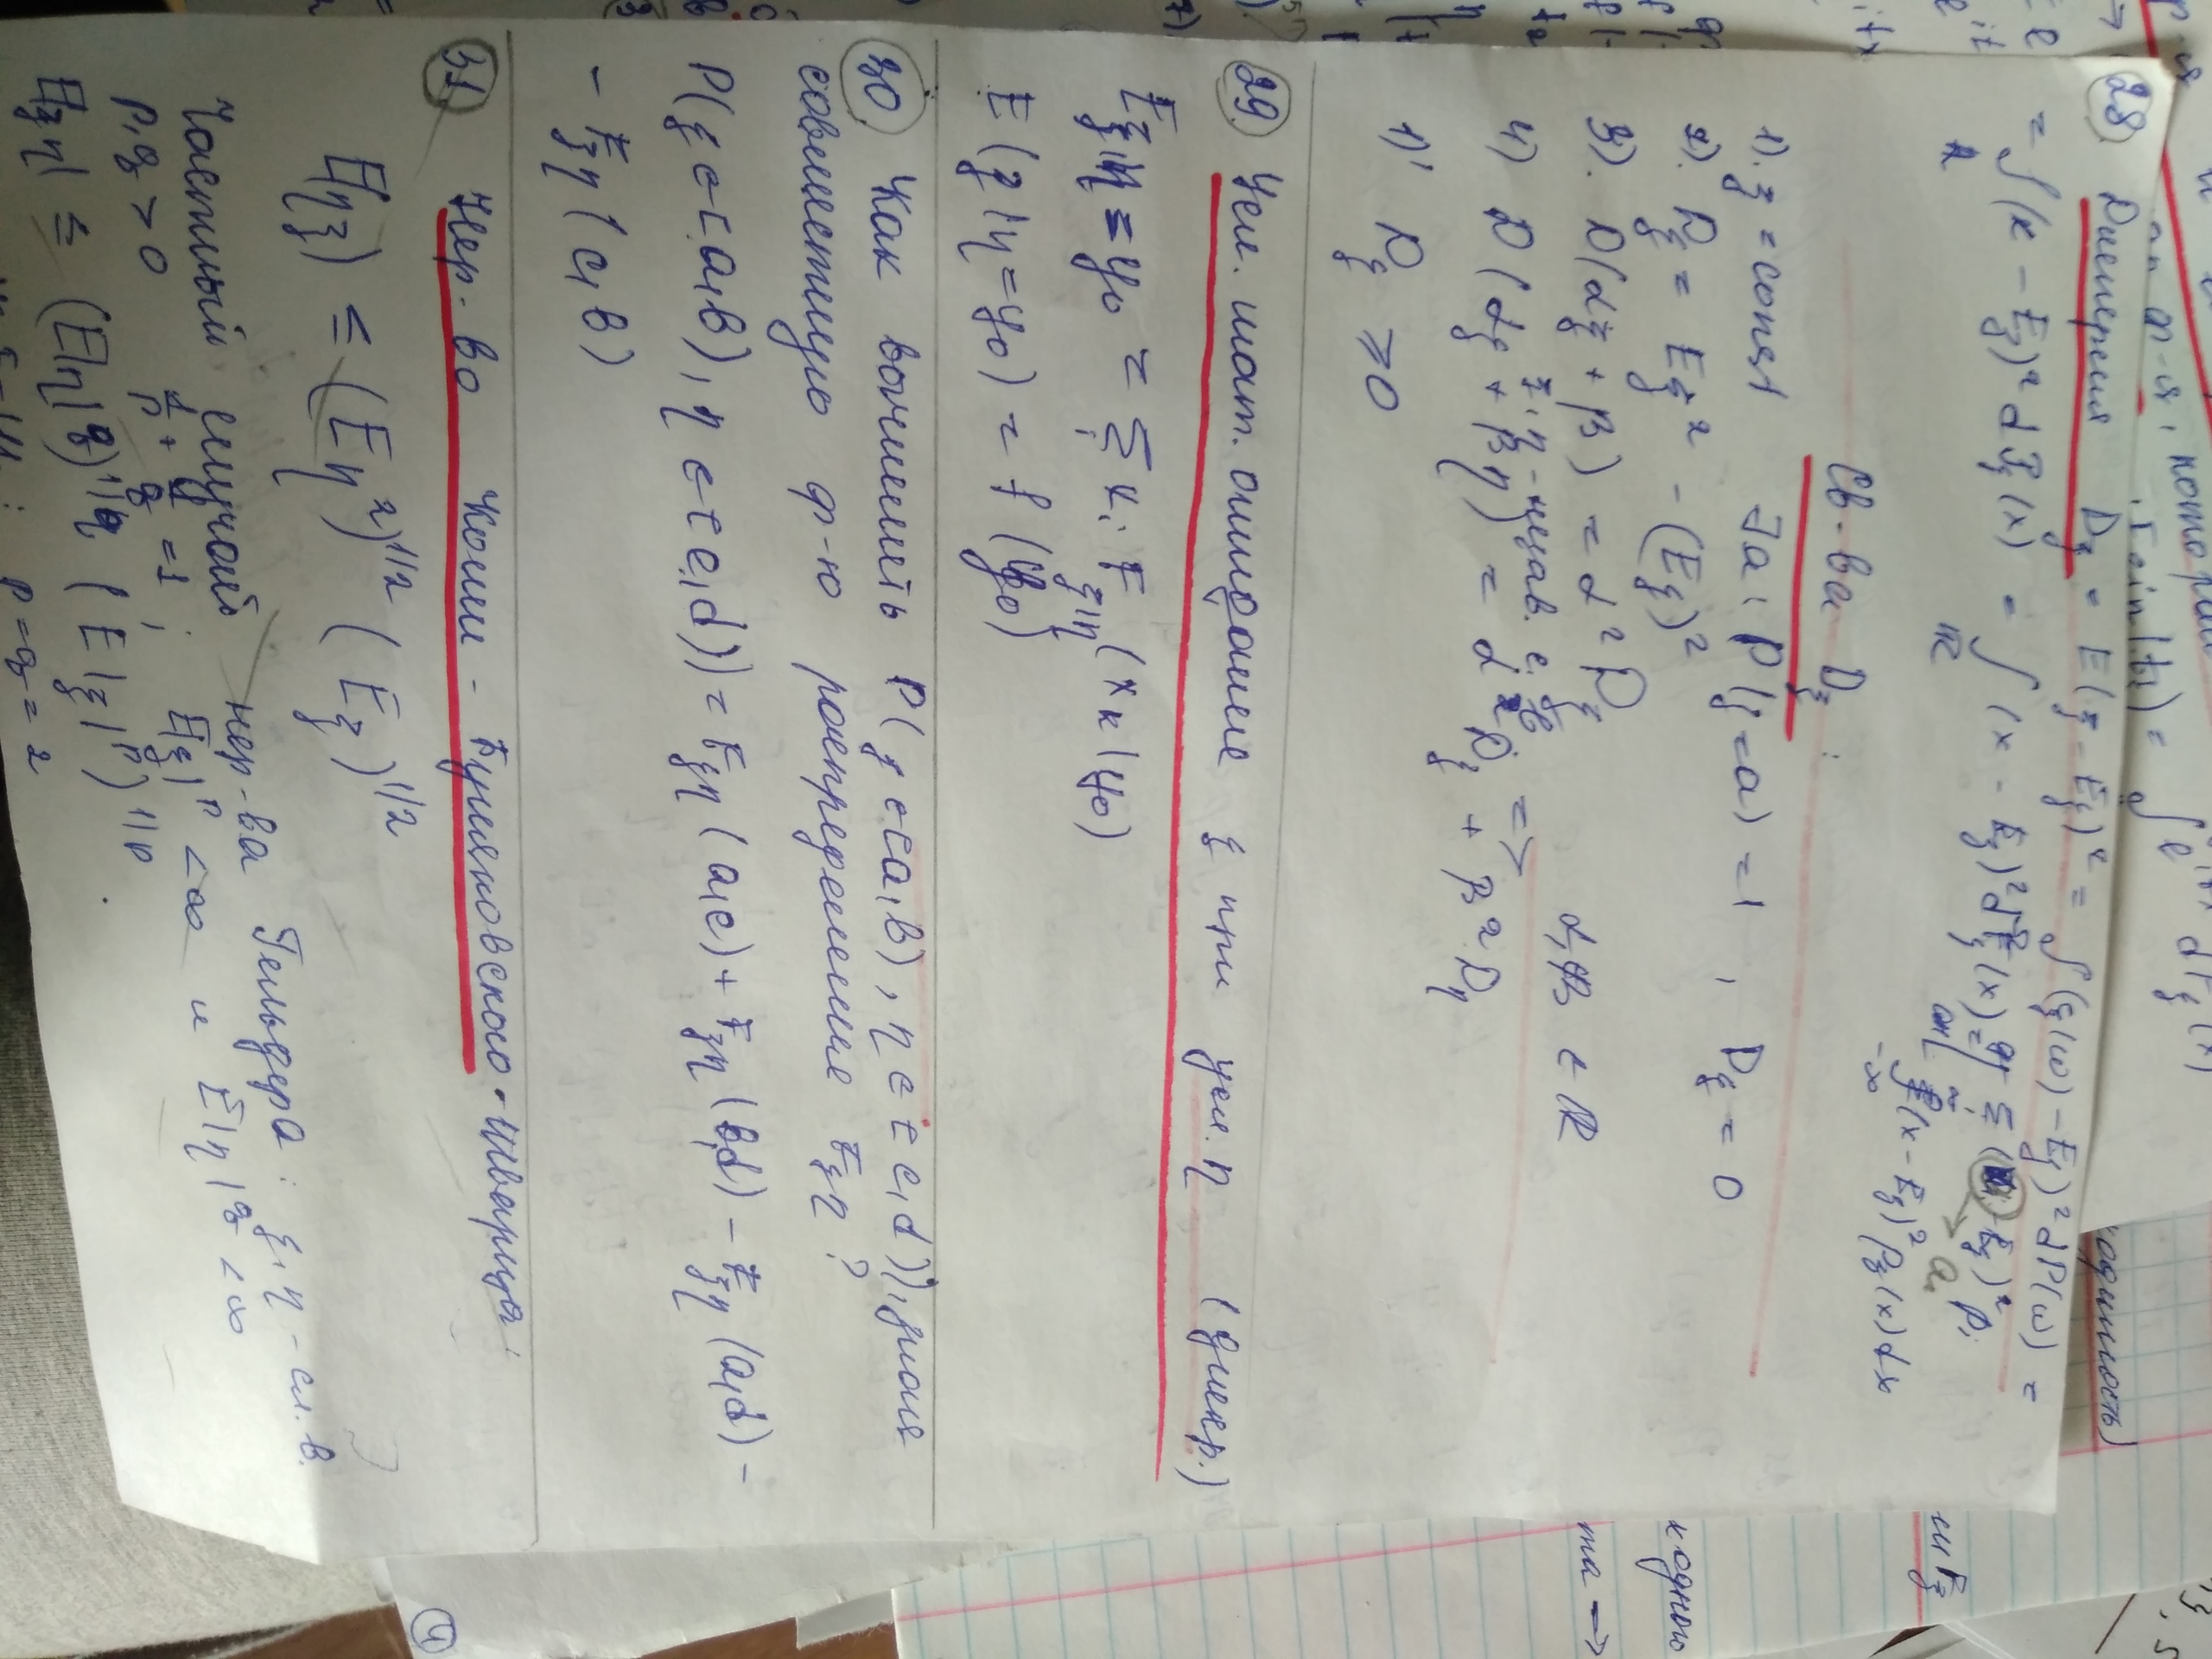 28. Дисперсия Dξ = E(ξ - Eξ)² = ∫(ξ(ω) - Eξ)² dP(ω) =
= ∫(x - Eξ)² dPξ(x) = ∫ℝ (x - Eξ)² dFξ(x) = Σi ( - Eξ)² pi
ai
∫ -∞ ∞ (x - Eξ)² pξ(x) dx
Св-ва Dξ :
1). ξ = const ∃a : P(ξ=a) = 1 , Dξ = 0
2). Dξ = Eξ² - (Eξ)²
3). D(αξ + β) = α² Dξ
α, β ∈ ℝ
ξ, η - незав. с. в. =>
4) D(αξ + βη) = α² Dξ + β² Dη
1)' Dξ ≥ 0
29. Усл. мат. ожидание ξ при усл. η (дискр.)
Eξ|η = y₀ = Σi xi Fξ|η(xk|y₀)
E(ξ|η=y₀) = f(y₀)
30. Как вычислить P(ξ ∈ [a,b), η ∈ [c,d)), зная
совместную ф-ю распределения Fξη ?
P(ξ ∈ [a,b), η ∈ [c,d)) = Fξη(a,c) + Fξη(b,d) - Fξη(a,d) -
- Fξη(c,b)
31. Нер-во Коши - Буняковского - Шварца:
E|ηξ| ≤ (Eη²)^1/2 (Eξ)^1/2
Частный случай нер-ва Гельдера: ξ, η - сл. в.
p, q > 0 1/p + 1/q = 1 ; E|ξ|^p < ∞ и E|η|^q < ∞
E|ξη| ≤ (E|η|^q)^1/q (E|ξ|^p)^1/p .
p = q = 2
которая
ф-я,
одимость)
ш Fξ
х одного
та →
4